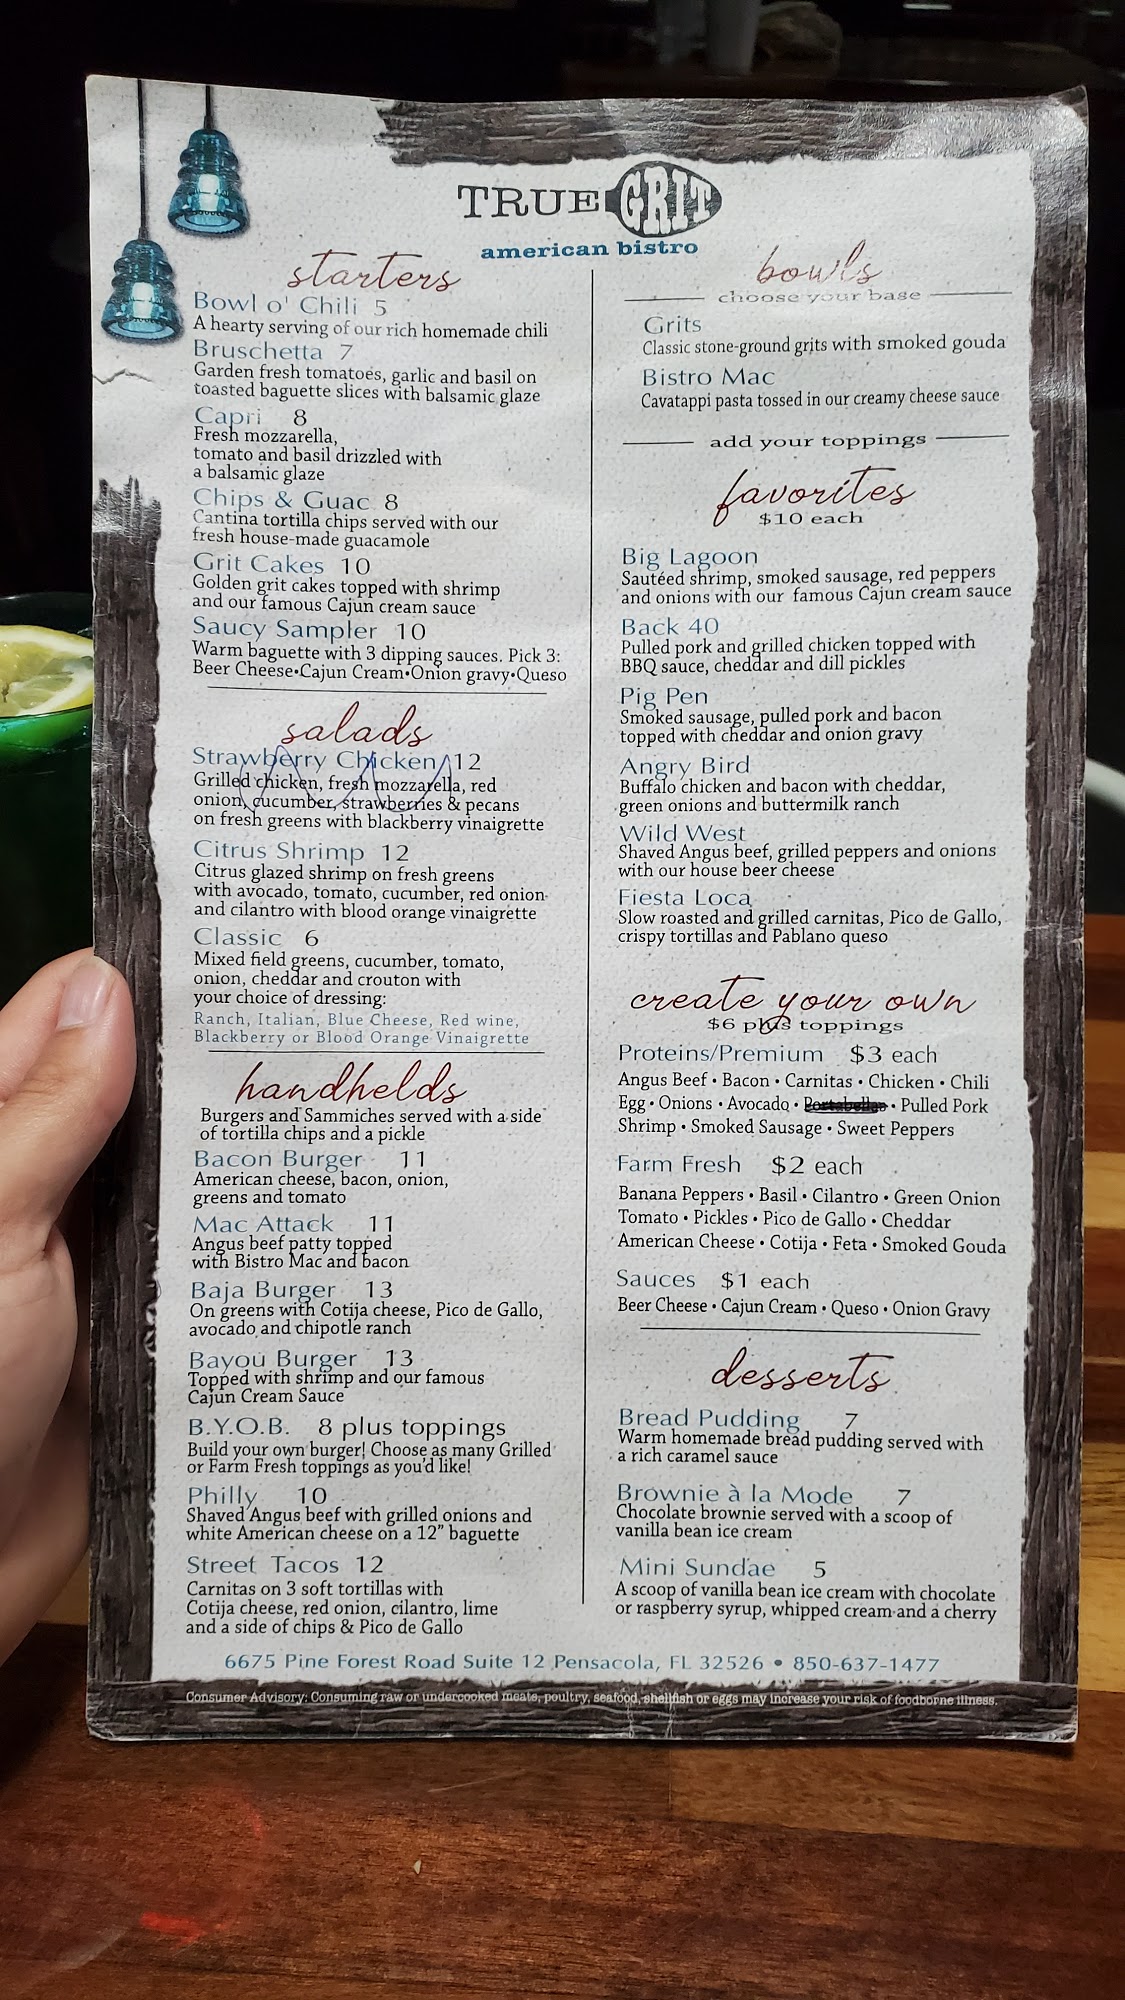 TRUE GRIT
american bistro
starters
Bowl o' Chili 5
A hearty serving of our rich homemade chili
Bruschetta 7
Garden fresh tomatoes, garlic and basil on
toasted baguette slices with balsamic glaze
Capri 8
Fresh mozzarella,
tomato and basil drizzled with
a balsamic glaze
Chips & Guac 8
Cantina tortilla chips served with our
fresh house-made guacamole
Grit Cakes 10
Golden grit cakes topped with shrimp
and our famous Cajun cream sauce
Saucy Sampler 10
Warm baguette with 3 dipping sauces. Pick 3:
Beer Cheese•Cajun Cream•Onion gravy•Queso
salads
Strawberry Chicken 12
Grilled chicken, fresh mozzarella, red
onion, cucumber, strawberries & pecans
on fresh greens with blackberry vinaigrette
Citrus Shrimp 12
Citrus glazed shrimp on fresh greens
with avocado, tomato, cucumber, red onion
and cilantro with blood orange vinaigrette
Classic 6
Mixed field greens, cucumber, tomato,
onion, cheddar and crouton with
your choice of dressing:
Ranch, Italian, Blue Cheese, Red wine,
Blackberry or Blood Orange Vinaigrette
handhelds
Burgers and Sammiches served with a side
of tortilla chips and a pickle
Bacon Burger 11
American cheese, bacon, onion,
greens and tomato
Mac Attack 11
Angus beef patty topped
with Bistro Mac and bacon
Baja Burger 13
On greens with Cotija cheese, Pico de Gallo,
avocado and chipotle ranch
Bayou Burger 13
Topped with shrimp and our famous
Cajun Cream Sauce
B.Y.O.B. 8 plus toppings
Build your own burger! Choose as many Grilled
or Farm Fresh toppings as you'd like!
Philly 10
Shaved Angus beef with grilled onions and
white American cheese on a 12" baguette
Street Tacos 12
Carnitas on 3 soft tortillas with
Cotija cheese, red onion, cilantro, lime
and a side of chips & Pico de Gallo
bowls
choose your base
Grits
Classic stone-ground grits with smoked gouda
Bistro Mac
Cavatappi pasta tossed in our creamy cheese sauce
add your toppings
favorites
$10 each
Big Lagoon
Sautéed shrimp, smoked sausage, red peppers
and onions with our famous Cajun cream sauce
Back 40
Pulled pork and grilled chicken topped with
BBQ sauce, cheddar and dill pickles
Pig Pen
Smoked sausage, pulled pork and bacon
topped with cheddar and onion gravy
Angry Bird
Buffalo chicken and bacon with cheddar,
green onions and buttermilk ranch
Wild West
Shaved Angus beef, grilled peppers and onions
with our house beer cheese
Fiesta Loca
Slow roasted and grilled carnitas, Pico de Gallo,
crispy tortillas and Pablano queso
create your own
$6 plus toppings
Proteins/Premium $3 each
Angus Beef • Bacon • Carnitas • Chicken • Chili
Egg • Onions • Avocado • Portabellas • Pulled Pork
Shrimp • Smoked Sausage • Sweet Peppers
Farm Fresh $2 each
Banana Peppers • Basil • Cilantro • Green Onion
Tomato • Pickles • Pico de Gallo • Cheddar
American Cheese • Cotija • Feta • Smoked Gouda
Sauces $1 each
Beer Cheese • Cajun Cream • Queso • Onion Gravy
desserts
Bread Pudding 7
Warm homemade bread pudding served with
a rich caramel sauce
Brownie à la Mode 7
Chocolate brownie served with a scoop of
vanilla bean ice cream
Mini Sundae 5
A scoop of vanilla bean ice cream with chocolate
or raspberry syrup, whipped cream and a cherry
6675 Pine Forest Road Suite 12 Pensacola, FL 32526 • 850-637-1477
Consumer Advisory: Consuming raw or undercooked meats, poultry, seafood, shellfish or eggs may increase your risk of foodborne illness.